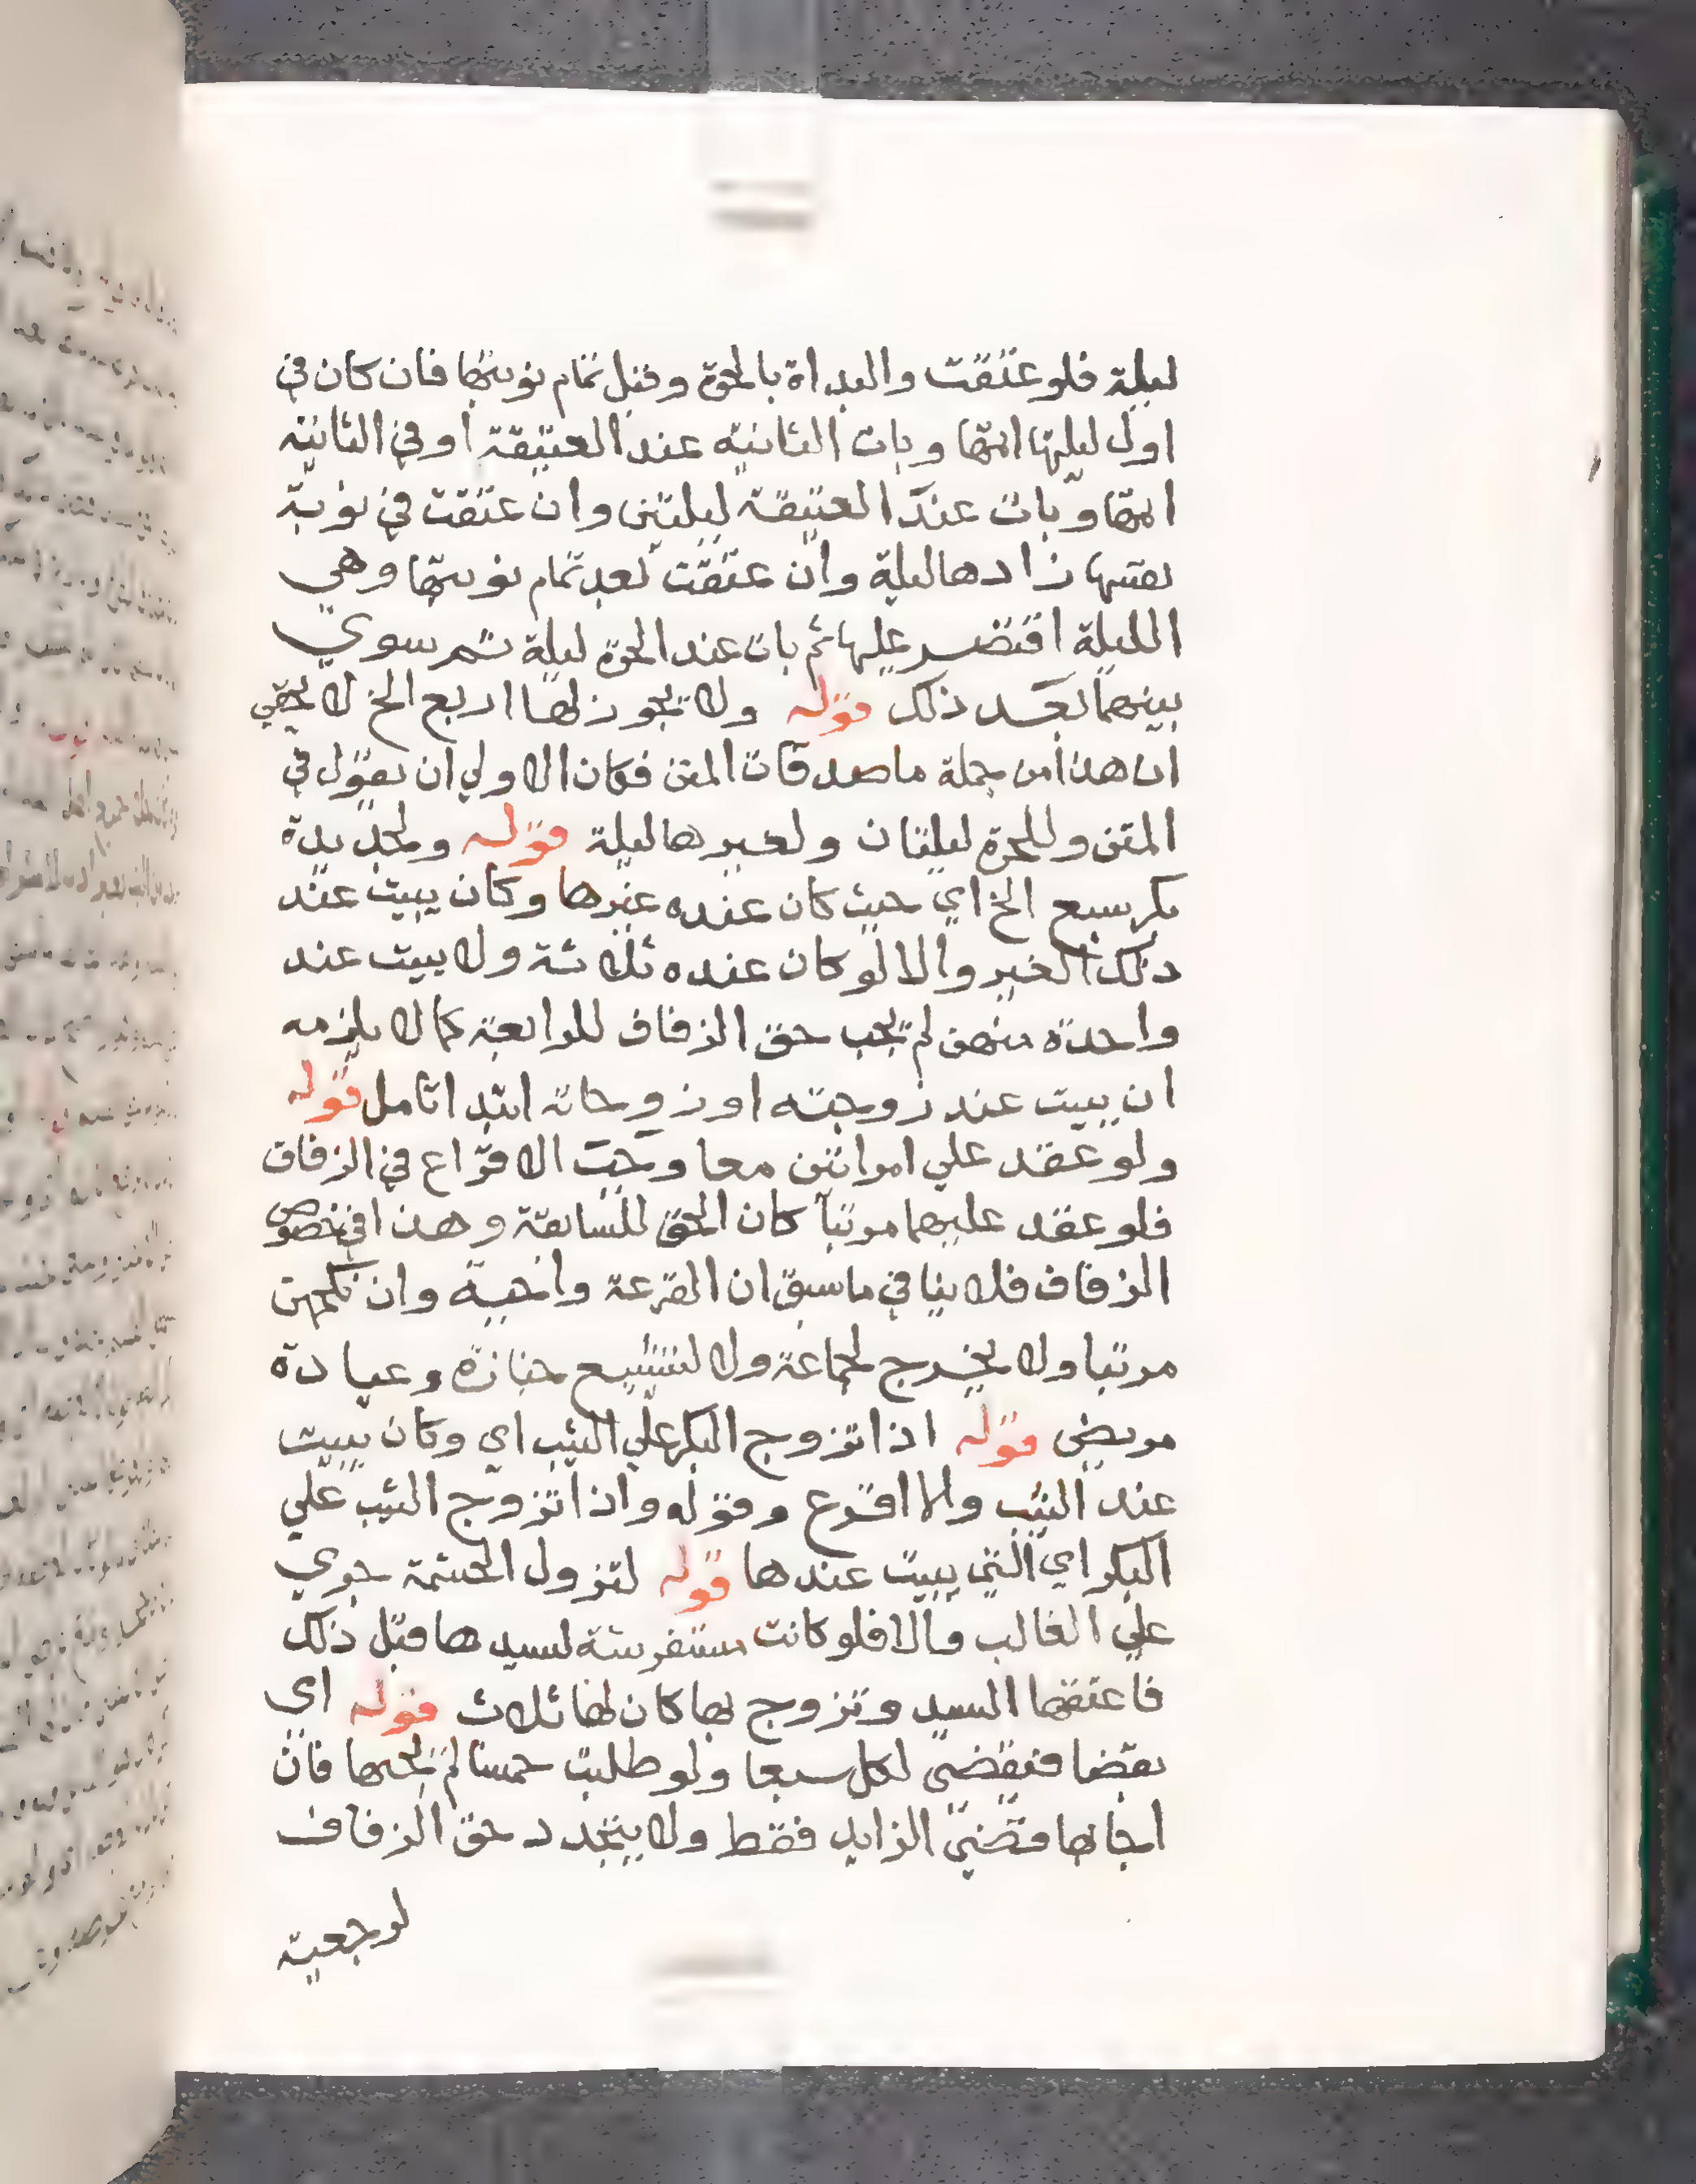 ليلة فلو عتقت والبداة بالحرة وقبل تمام نوبتها فان كان في
اول ليلتها اتمها وبات الثانية عند العتيقة او في الثانية
اتمها وبات عند العتيقة ليلتين وان عتقت في نوبة
نفسها زادها ليلة وان عتقت بعد تمام نوبتها وهي
الليلة اقتصر عليها ثم بات عند الحرة ليلة ثم سوي
بينهما بعد ذلك قوله ولا يجوز لها اربع الخ لا يخفي
ان هذا من جملة ماصدقات المتن فكان الاولي ان يقول في
المتن وللحرة ليلتان ولغيرها ليلة قوله ولجديدة
بكر سبع الخ اي حيث كان عنده غيرها وكان يبيت عند
ذلك الغير والا لو كان عنده ثلاثة ولا يبيت عند
واحدة منهن لم يجب حق الزفاف للرابعة كما لا يلزمه
ان يبيت عند زوجته او زوجاته ابتدا تامل قوله
ولو عقد علي امراتين معا وجب الاقراع في الزفاف
فلو عقد عليهما مرتبا كان الحق للسابقة وهذا في خصوص
الزفاف فلا ينافي ما سبق ان القرعة واجبة وان نكحهن
مرتبا ولا يخرج لجماعة ولا لتشييع جنازة وعيادة
مريض قوله اذا تزوج البكر علي الثيب اي وكان يبيت
عند الثيب والا اقرع وقوله واذا تزوج الثيب علي
البكر اي التي يبيت عندها قوله لتزول الحشمة جري
علي الغالب والا فلو كانت مستفرشة لسيدها قبل ذلك
فاعتقها السيد وتزوج بها كان لها ثلاث قوله اي
بقضا فيقضي لكل سبعا ولو طلبت خمسا لم يجبها فان
اجابها قضي الزايد فقط ولا يتجدد حق الزفاف
لرجعية